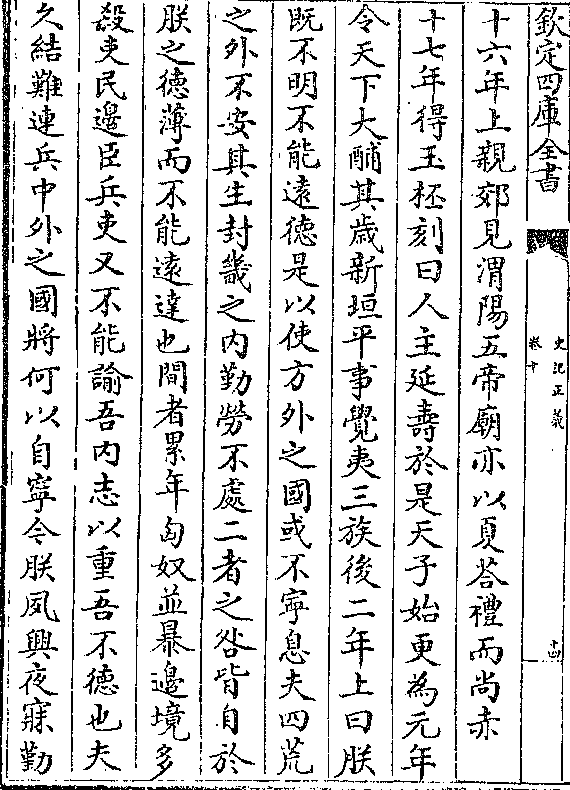 欽定四庫全書
史記正義
卷十
十四
十六年上親郊見渭陽五帝廟亦以夏荅禮而尚赤
十七年得玉杯刻曰人主延壽於是天子始更為元年
令天下大酺其歲新垣平事覺夷三族後二年上曰朕
既不明不能遠德是以使方外之國或不寧息夫四荒
之外不安其生封畿之内勤勞不處二者之咎皆自於
朕之德薄而不能遠達也間者累年匈奴並暴邊境多
殺吏民邊臣兵吏又不能諭吾内志以重吾不德也夫
久結難連兵中外之國將何以自寧今朕夙興夜寐勤